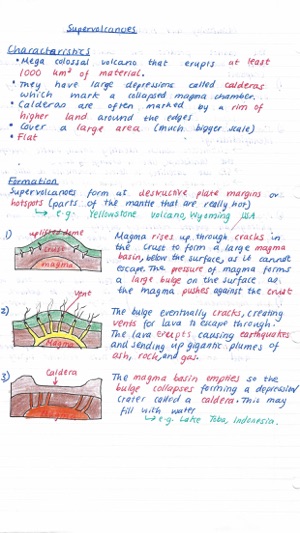 Supervolcanoes
Characteristics
• Mega colossal volcano that erupts at least
1000 km³ of material.
• They have large depressions called calderas
which mark a collapsed magma chamber.
• Calderas are often marked by a rim of
higher land around the edges
• Cover a large area (much bigger scale)
• Flat
Formation
Supervolcanoes form at destructive plate margins or
hotspots (parts of the mantle that are really hot)
↳ e.g. Yellowstone Volcano, Wyoming USA
1)
uplifted dome
crust
magma
Magma rises up through cracks in
the crust to form a large magma
basin, below the surface, as it cannot
escape. The pressure of magma forms
a large bulge on the surface as
the magma pushes against the crust
2)
vent
Magma
The bulge eventually cracks, creating
vents for lava to escape through.
The lava erupts causing earthquakes
and sending up gigantic plumes of
ash, rock, and gas.
3)
Caldera
The magma basin empties so the
bulge collapses forming a depression/
crater called a caldera. This may
fill with water
↳ e.g. Lake Toba, Indonesia.